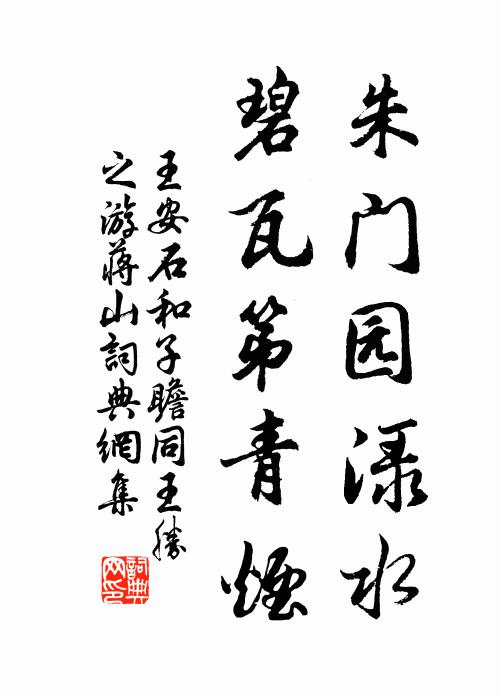 朱门园渌水
碧瓦第青烟
王安石和子瞻同王胜
之游蒋山詞典網集
詞典网印